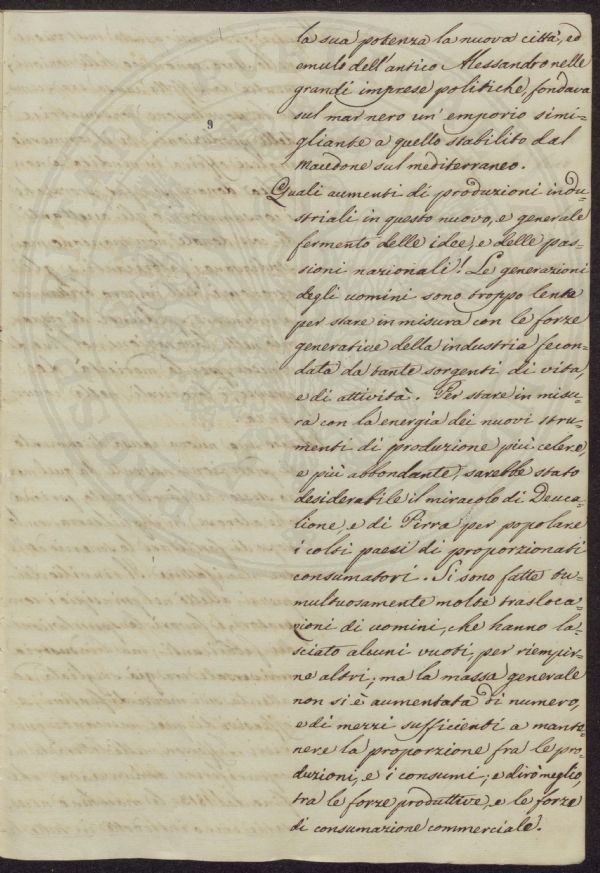 la sua potenza la nuova città, ed
emulò dell'antico Alessandro nelle
grandi imprese politiche, fondava
sul mar nero un' emporio simi=
gliante a quello stabilito dal
Macedone sul mediterraneo.
Quali aumenti di produzioni indu=
striali in questo nuovo, e generale
fermento delle idee, e delle pas=
sioni nazionali! Le generazioni
degli uomini sono troppo lente
per stare in misura con le forze
generative della industria fecon=
data da tante sorgenti di vita,
e di attività. Per stare in misu=
ra con la energia dei nuovi stru=
menti di produzione più celere,
e più abbondante, sarebbe stato
desiderabile il miracolo di Deuca=
lione, e di Pirra per popolare
i colti paesi di proporzionati
consumatori. Si sono fatte tu=
multuosamente molte trasloca=
zioni di uomini, che hanno la=
sciato alcuni vuoti, per riempir=
ne altri; ma la massa generale
non si è aumentata di numero,
e di mezzi sufficienti a mante=
nere la proporzione fra le pro=
duzioni, e i consumi; e dirò meglio,
tra le forze produttive, e le forze
di consumazione commerciale.
9